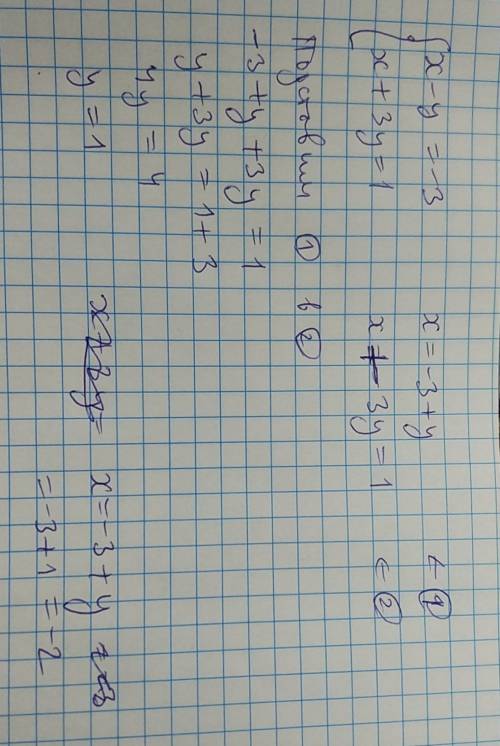 x - y = -3 x = -3 + y ← ①
x + 3y = 1 x + 3y = 1 ← ②
Подставим ① в ②
-3 + y + 3y = 1
y + 3y = 1 + 3
4y = 4
y = 1 x = -3 + y =
= -3 + 1 = -2